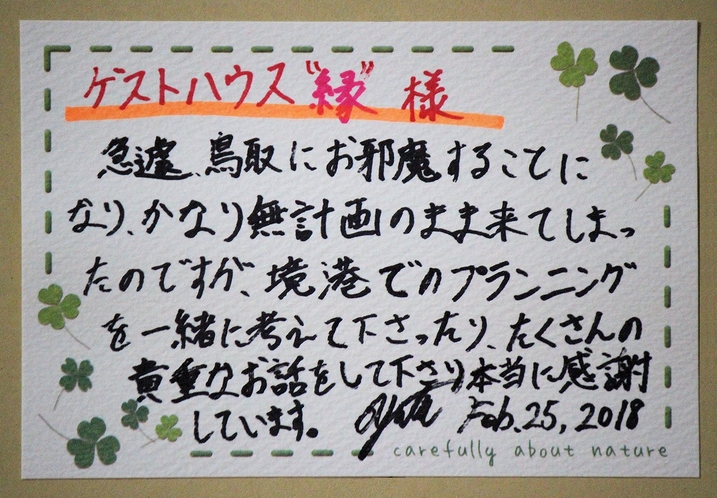 ゲストハウス"縁"様
急遽、鳥取にお邪魔することに
なり、かなり無計画のまま来てしまっ
たのですが、境港でのプランニング
を一緒に考えて下さったり、たくさんの
貴重なお話をして下さり本当に感謝
しています。 Feb.25,2018
carefully about nature